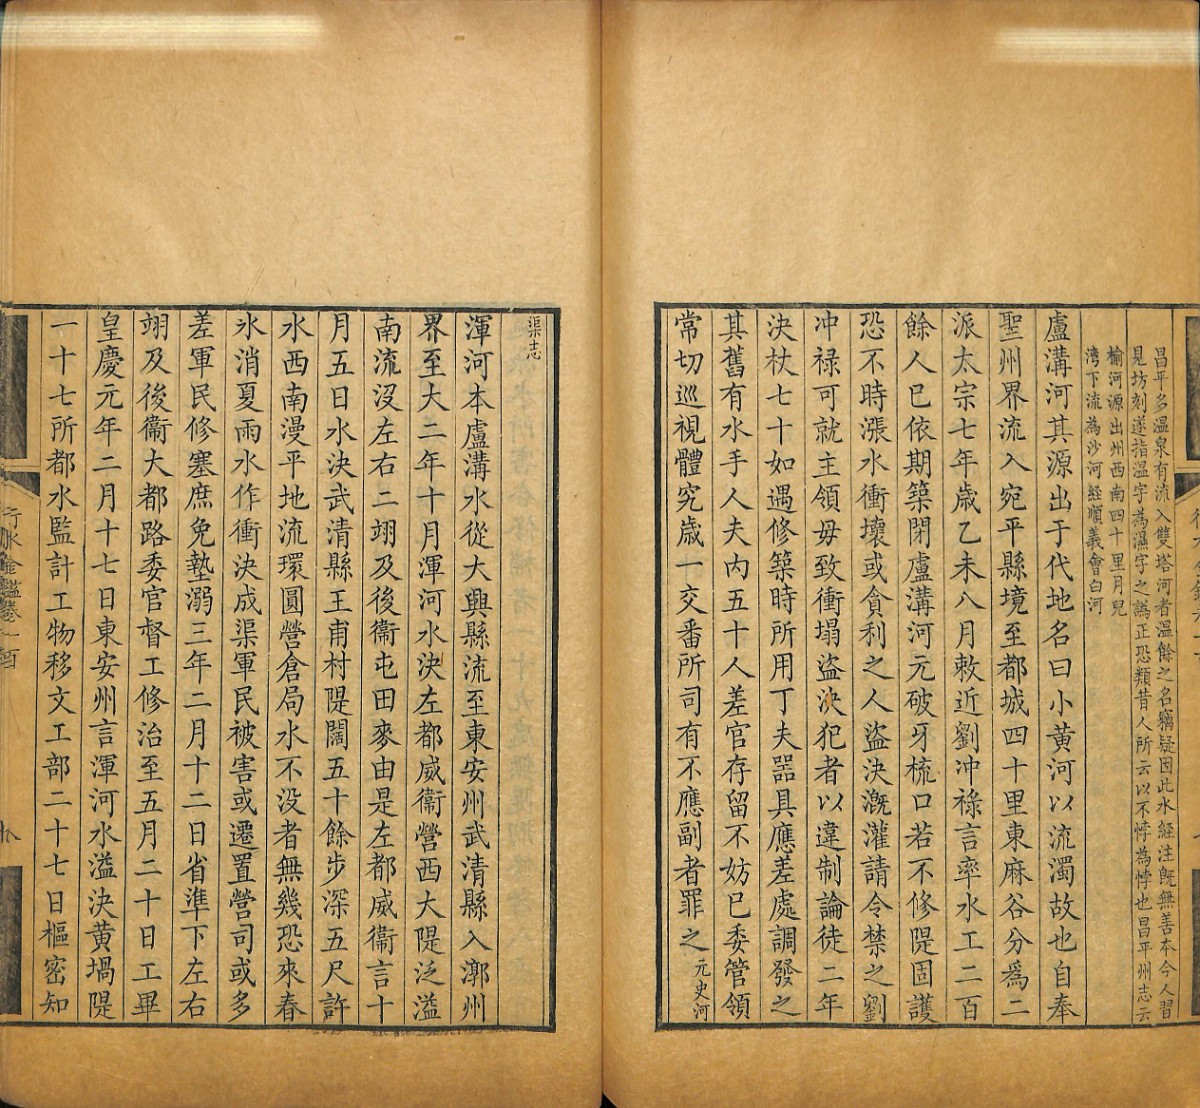 昌平多温泉有流入雙塔河者温餘之名竊疑因此水經注既無善本今人習
見坊刻遂指温字為濕字之譌正恐類昔人所云以不悖為悖也昌平州志云
榆河源出州西南四十里月兒
湾下流為沙河經順義會白河
盧溝河其源出于代地名曰小黄河以流濁故也自奉
聖州界流入宛平縣境至都城四十里東麻谷分爲二
派太宗七年歳乙未八月敕近劉冲祿言率水工二百
餘人已依期築閉盧溝河元破牙梳口若不修隄固護
恐不時漲水衝壞或貪利之人盜決漑灌請令禁之劉
冲禄可就主領毋致衝塌盜決犯者以違制論徒二年
決杖七十如遇修築時所用丁夫噐具應差處調發之
其舊有水手人夫内五十人差官存留不妨已委管領
常切巡視體究歳一交番所司有不應副者罪之元史河
渠志
渾河本盧溝水從大興縣流至東安州武清縣入漷州
界至大二年十月渾河水決左都威衞營西大隄泛溢
南流沒左右二翊及後衞屯田麥由是左都威衞言十
月五日水決武清縣王甫村隄闊五十餘步深五尺許
水西南漫平地流環圓營倉局水不没者無幾恐來春
氷消夏雨水作衝決成渠軍民被害或遷置營司或多
差軍民修塞庶免墊溺三年二月十二日省準下左右
翊及後衞大都路委官督工修治至五月二十日工畢
皇慶元年二月十七日東安州言渾河水溢決黄堝隄
一十七所都水監計工物移文工部二十七日樞密知
行水金鑑卷一百